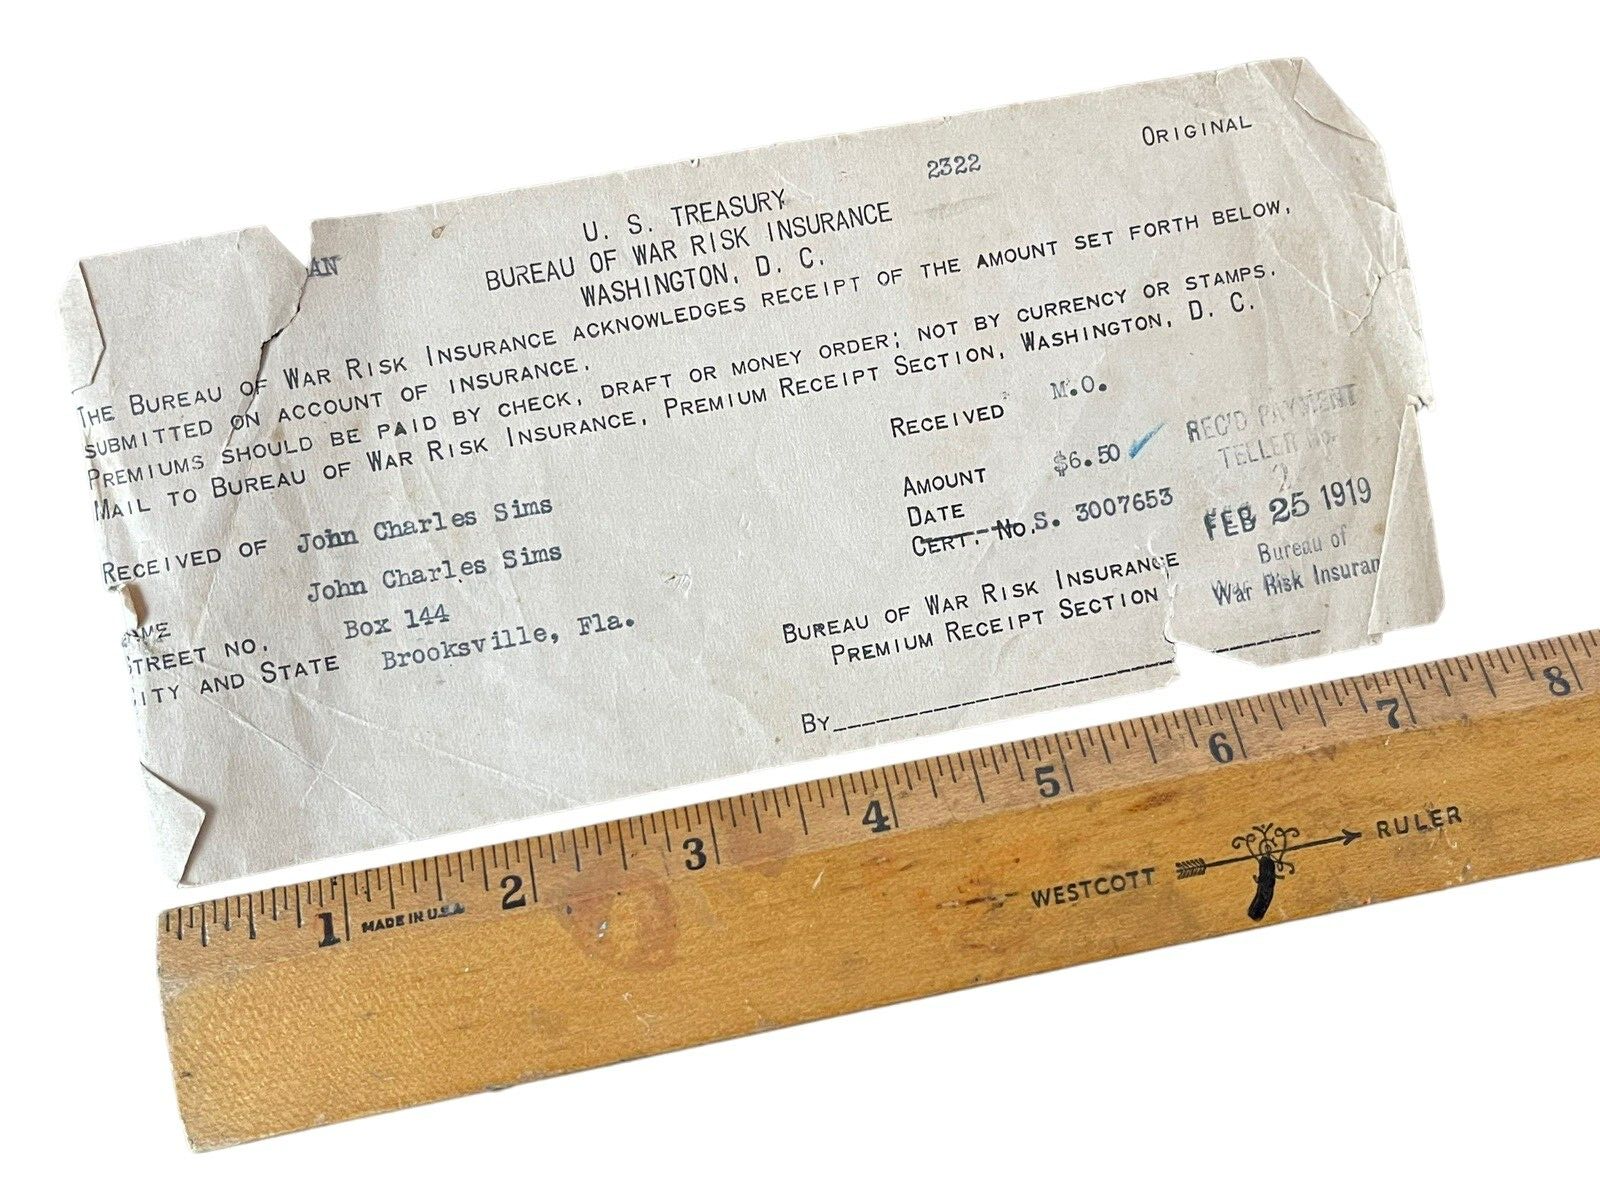 ORIGINAL
2322
AN
U. S. TREASURY
BUREAU OF WAR RISK INSURANCE
WASHINGTON, D. C.
THE BUREAU OF WAR RISK INSURANCE ACKNOWLEDGES RECEIPT OF THE AMOUNT SET FORTH BELOW,
SUBMITTED ON ACCOUNT OF INSURANCE.
PREMIUMS SHOULD BE PAID BY CHECK, DRAFT OR MONEY ORDER; NOT BY CURRENCY OR STAMPS.
MAIL TO BUREAU OF WAR RISK INSURANCE, PREMIUM RECEIPT SECTION, WASHINGTON, D. C.
RECEIVED M.O.
AMOUNT $6.50
DATE
CERT. No. S. 3007653
REC'D PAYMENT
TELLER No.
2
FEB 25 1919
Bureau of
War Risk Insuran
RECEIVED OF John Charles Sims
John Charles Sims
STREET NO. Box 144
CITY AND STATE Brooksville, Fla.
BUREAU OF WAR RISK INSURANCE
PREMIUM RECEIPT SECTION
BY
1 2 3 4 5 6 7 8
MADE IN U.S.A.
WESTCOTT RULER